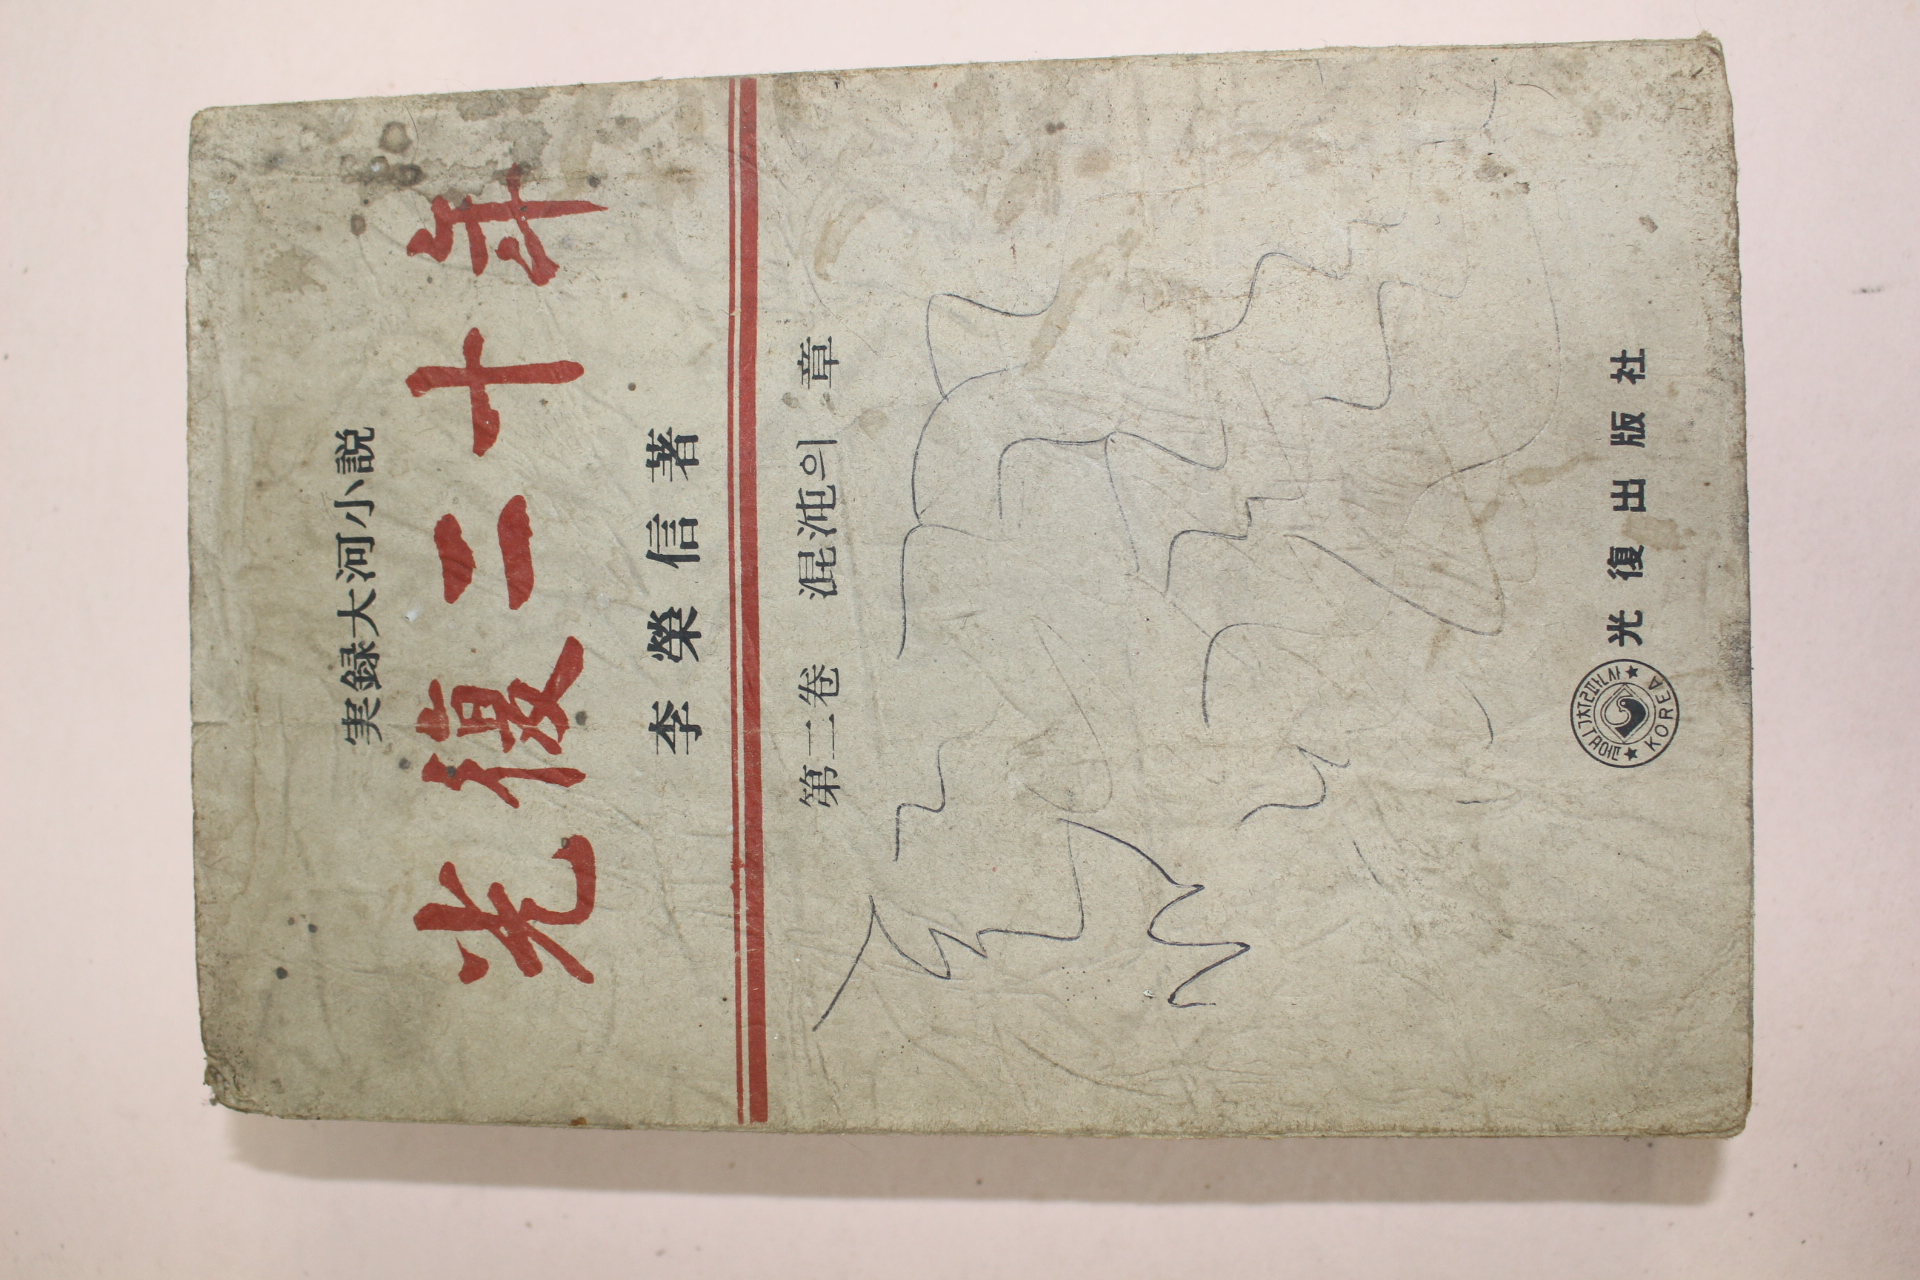 実録大河小説
光復二十年
李榮信著
第二卷 混沌의 章
光復出版社
KOREA